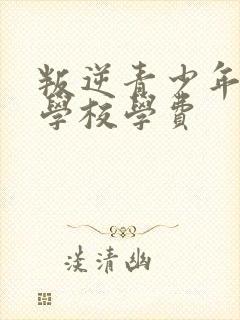 叛逆青少年
學校學費
淡清幽